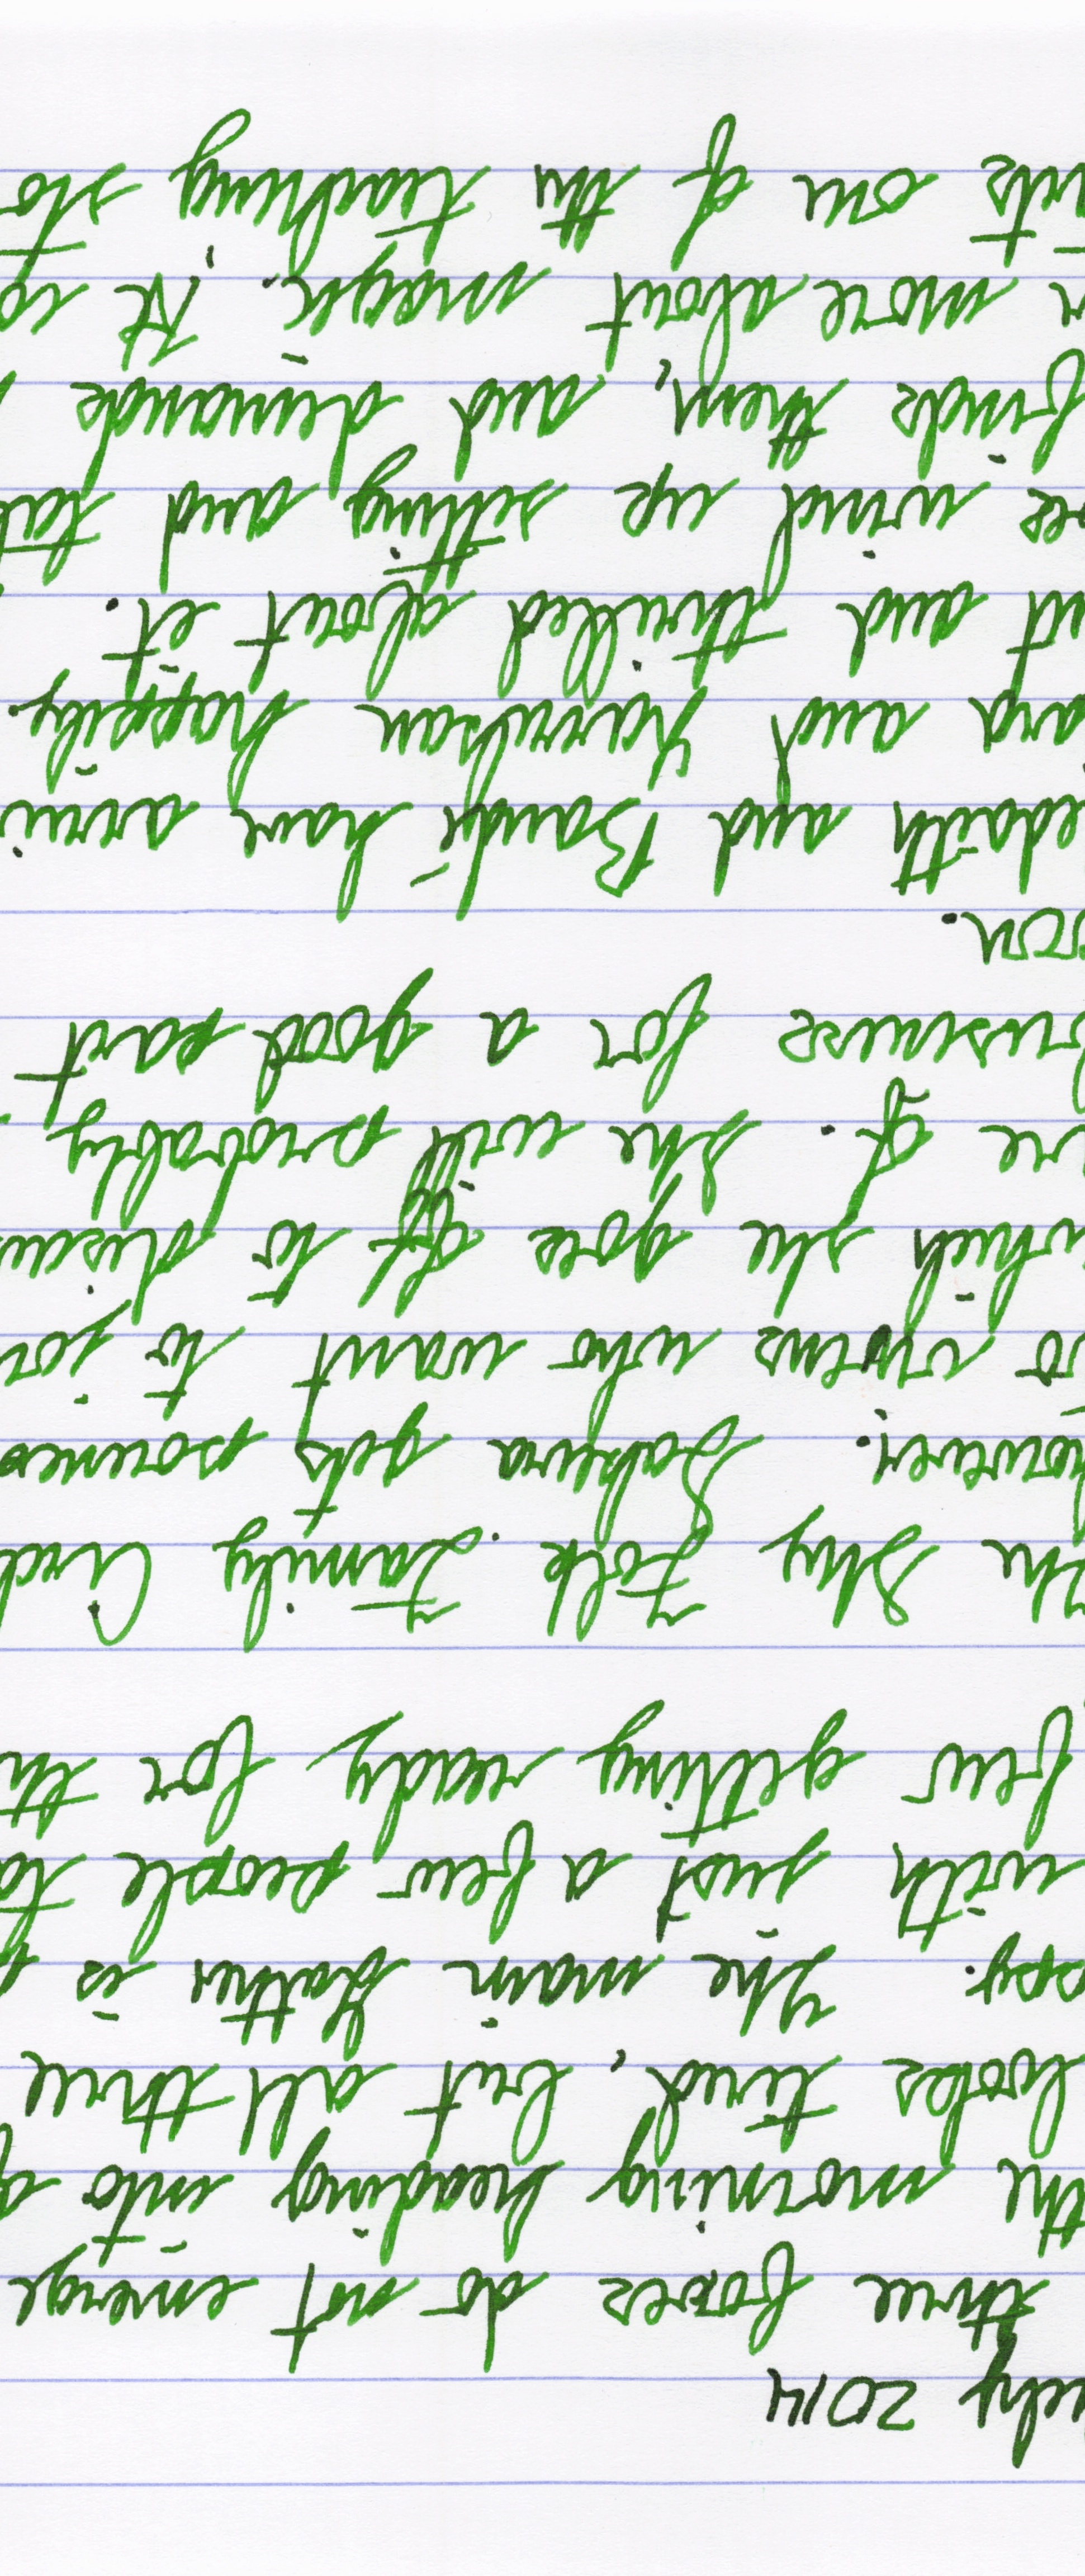 uly 2014
three foxes do not emerge
the morning heading into
looks tired, but all three
ppy. The main Gather is
with just a few people ta
few getting ready for th
the Shy Folk Family Circl
however. Sakura gets pounced
o vixens who want to joi
which she goes off to discus
re of. She will probably
business for a good part
oon.
edaith and Bandi have arri
ara and happily.
ut and thrilled about it.
es wind up sitting and tal
finds them, and demands
n more about magic. It
on of the teaching sto